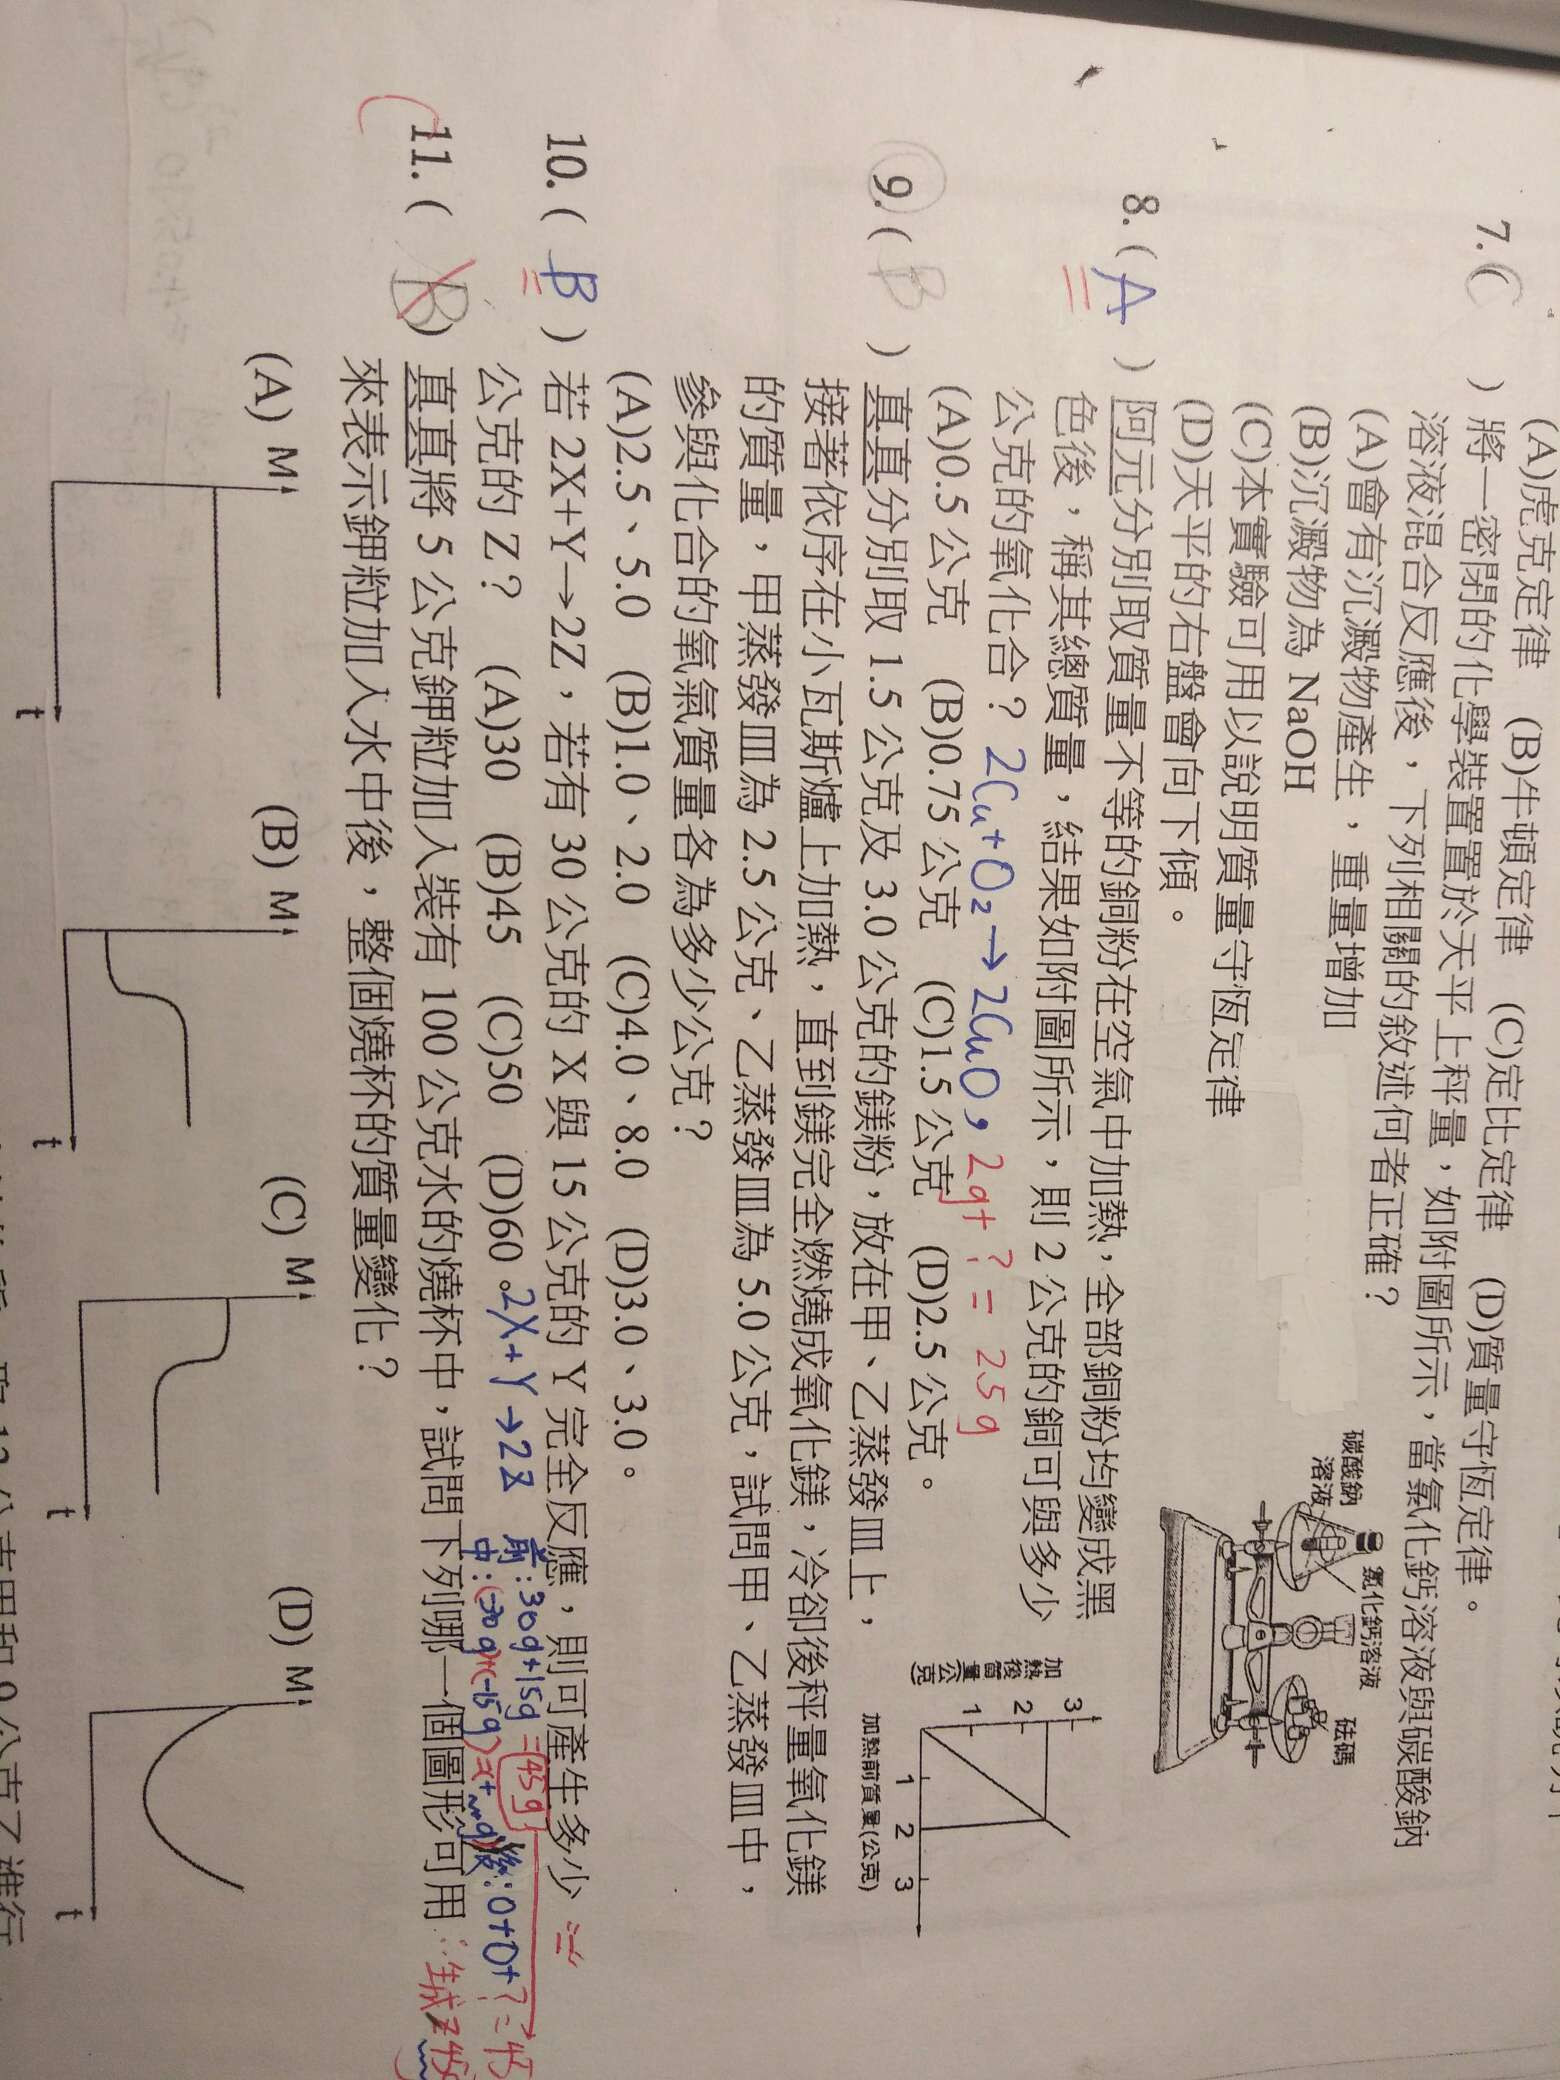 (A)虎克定律 (B)牛頓定律 (C)定比定律 (D)質量守恆定律。
7. ( C ) 將一密閉的化學裝置置於天平上秤量，如附圖所示，當氯化鈣溶液與碳酸鈉
溶液混合反應後，下列相關的敘述何者正確？
(A)會有沉澱物產生，重量增加
(B)沉澱物為 NaOH
(C)本實驗可用以說明質量守恆定律
(D)天平的右盤會向下傾。
碳酸鈉
溶液
氯化鈣溶液
砝碼
8. ( A ) 阿元分別取質量不等的銅粉在空氣中加熱，全部銅粉均變成黑
色後，稱其總質量，結果如附圖所示，則 2 公克的銅可與多少
公克的氧化合？ 2Cu+O₂→2CuO, 2g+?=2.5g
(A)0.5 公克 (B)0.75 公克 (C)1.5 公克 (D)2.5 公克。
加熱後質量(公克)
3
2
1
1 2 3
加熱前質量(公克)
9. ( B ) 真真分別取 1.5 公克及 3.0 公克的鎂粉，放在甲、乙蒸發皿上，
接著依序在小瓦斯爐上加熱，直到鎂完全燃燒成氧化鎂，冷卻後秤量氧化鎂
的質量，甲蒸發皿為 2.5 公克、乙蒸發皿為 5.0 公克，試問甲、乙蒸發皿中，
參與化合的氧氣質量各為多少公克？
(A)2.5、5.0 (B)1.0、2.0 (C)4.0、8.0 (D)3.0、3.0。
10. ( B ) 若 2X+Y→2Z，若有 30 公克的 X 與 15 公克的 Y 完全反應，則可產生多少
公克的 Z？ (A)30 (B)45 (C)50 (D)60。2X+Y→2Z
前:30g+15g=45g
中:(-30g)+(-15g)
後:0+0+?=45
生成Z45g
11. ( B ) 真真將 5 公克鉀粒加入裝有 100 公克水的燒杯中，試問下列哪一個圖形可用
來表示鉀粒加入水中後，整個燒杯的質量變化？
(A) M t (B) M t (C) M t (D) M t